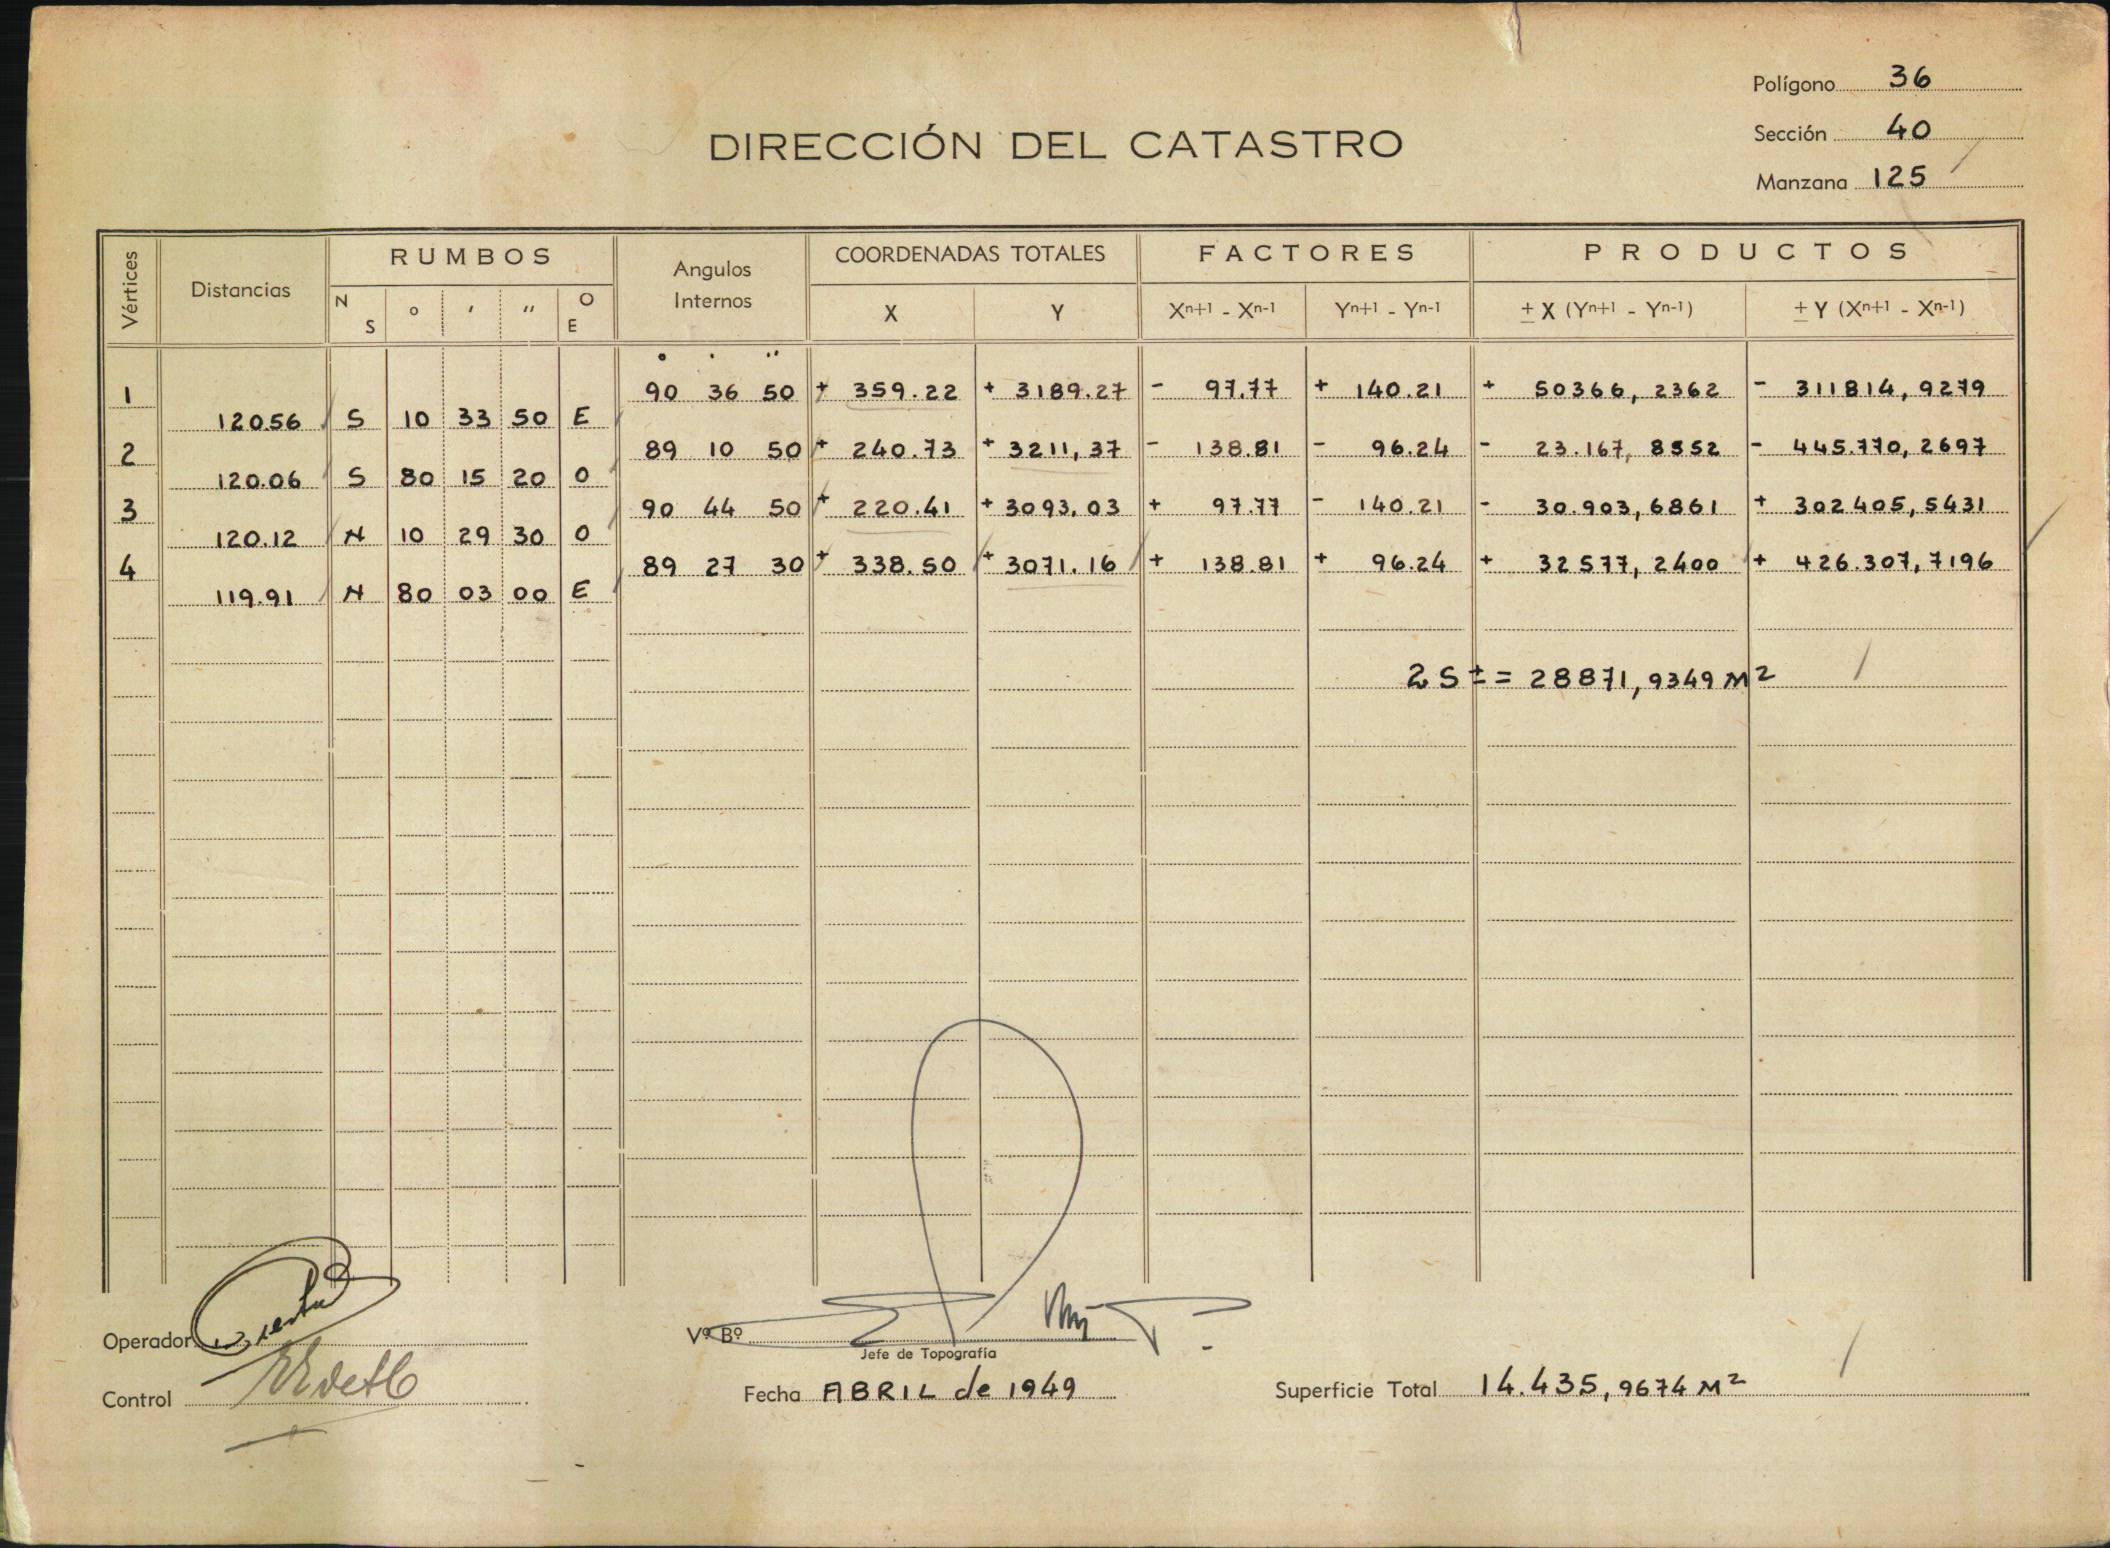 Polígono 36
DIRECCIÓN DEL CATASTRO
Sección 40
Manzana 125
Vértices Distancias RUMBOS Angulos Internos COORDENADAS TOTALES FACTORES PRODUCTOS
N S ° ' " O E X Y Xn+1 - Xn-1 Yn+1 - Yn-1 ± X (Yn+1 - Yn-1) ± Y (Xn+1 - Xn-1)
° ' "
1 90 36 50 + 359.22 + 3189.27 - 97.77 + 140.21 + 50366,2362 - 311814,9279
120.56 S 10 33 50 E
2 89 10 50 + 240.73 + 3211,37 - 138.81 - 96.24 - 23.167,8552 - 445.770,2697
120.06 S 80 15 20 O
3 90 44 50 + 220.41 + 3093.03 + 97.77 - 140.21 - 30.903,6861 + 302405,5431
120.12 N 10 29 30 O
4 89 27 30 + 338.50 + 3071.16 + 138.81 + 96.24 + 32577,2400 + 426.307,7196
119.91 N 80 03 00 E
2 S ± = 28871,9349 M²
Operador
Vº Bº
Jefe de Topografía
Control
Fecha ABRIL de 1949
Superficie Total 14.435,9674 M²